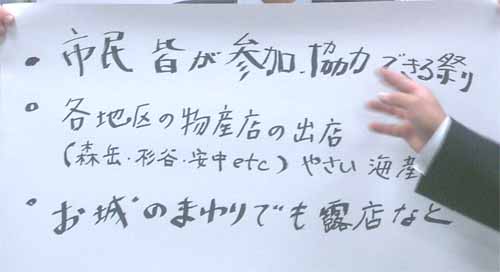 • 市民 皆が参加.協力できる祭り
• 各地区の物産店の出店
(森岳・杉谷・安中etc) やさい 海産
• お城のまわりでも露店など